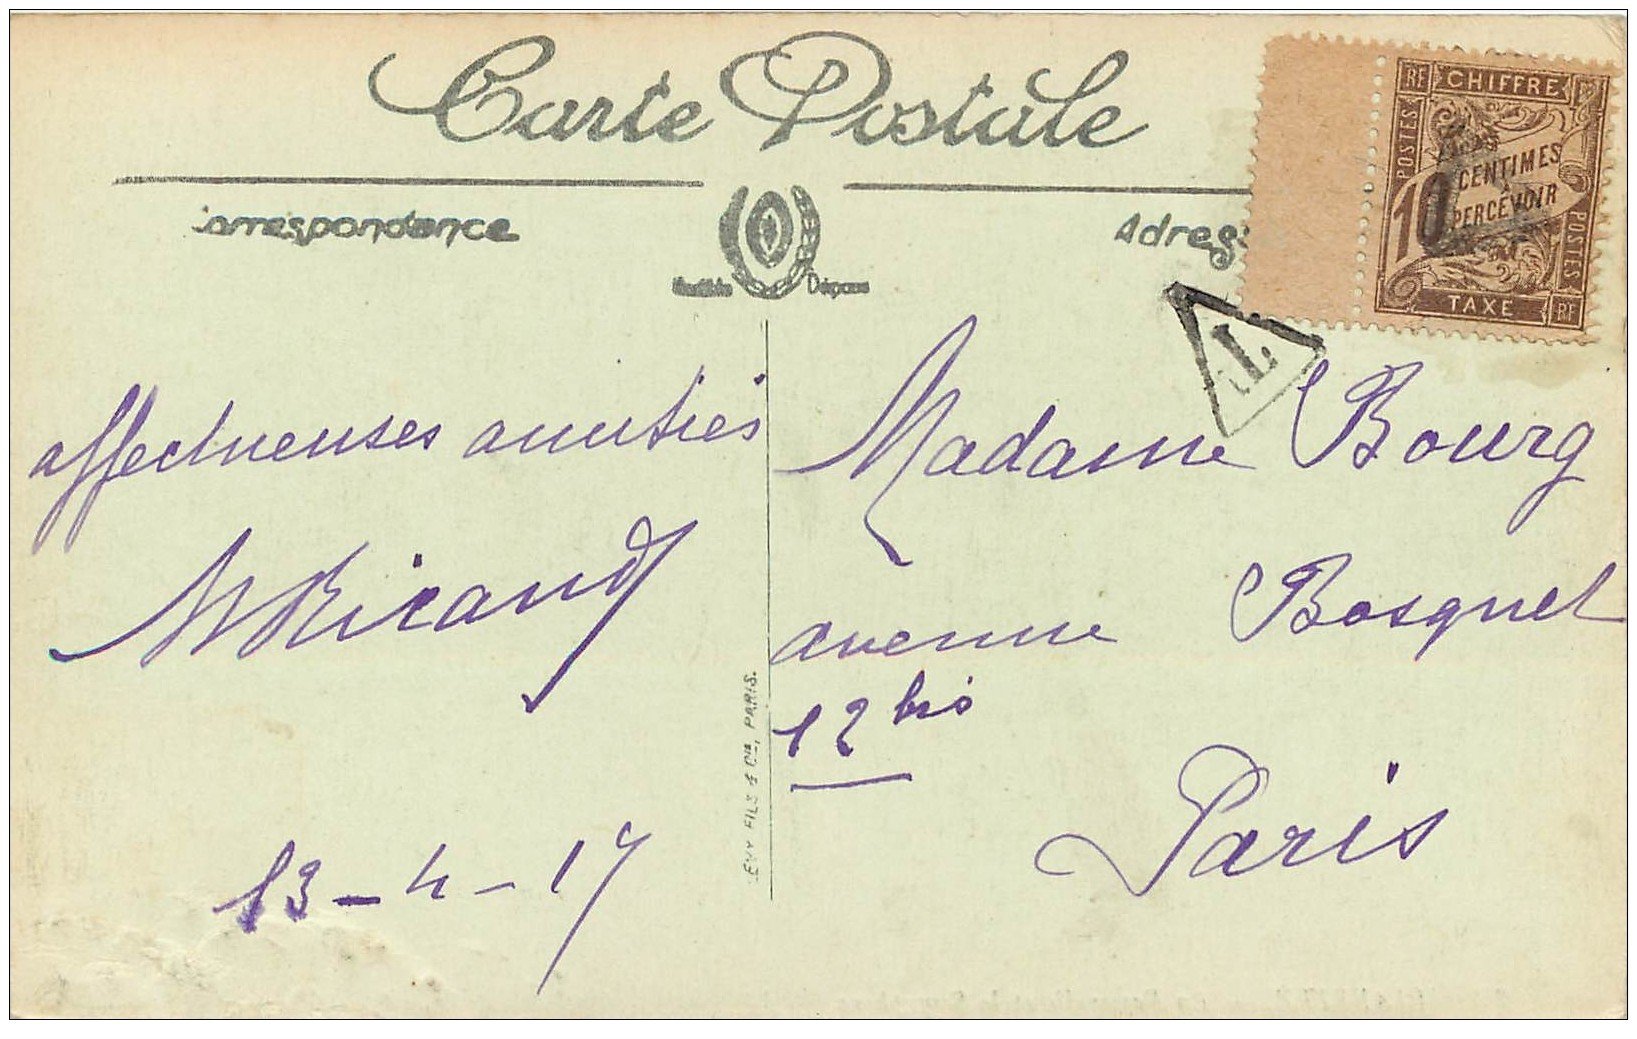 Carte Postale
Correspondance
Adresse
Modèles Déposés
RF CHIFFRE
POSTES
CENTIMES
À
PERCEVOIR
10
POSTES
TAXE RF
T
affectueuses amitiés
13-4-17
LEVY FILS & Cie, PARIS.
Madame Bourg
avenue Bosquet
12 bis
Paris